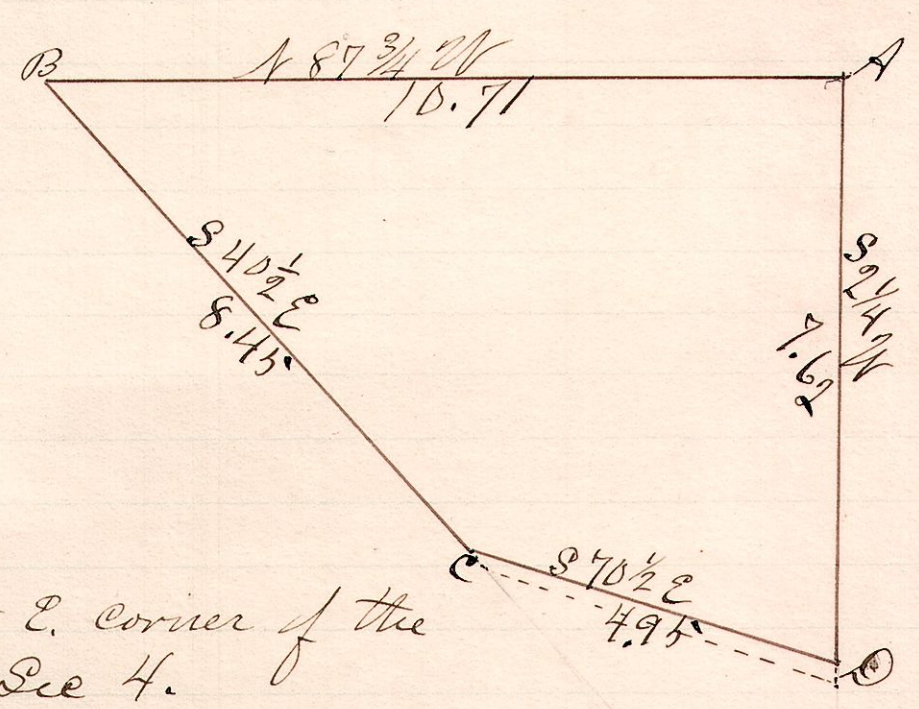 B
N 87 3/4 W
A
10.71
S 40 1/2 E
8.45
S 2 1/4 W
7.62
C
S 70 1/2 E
4.95
D
E. corner of the
Sec 4.